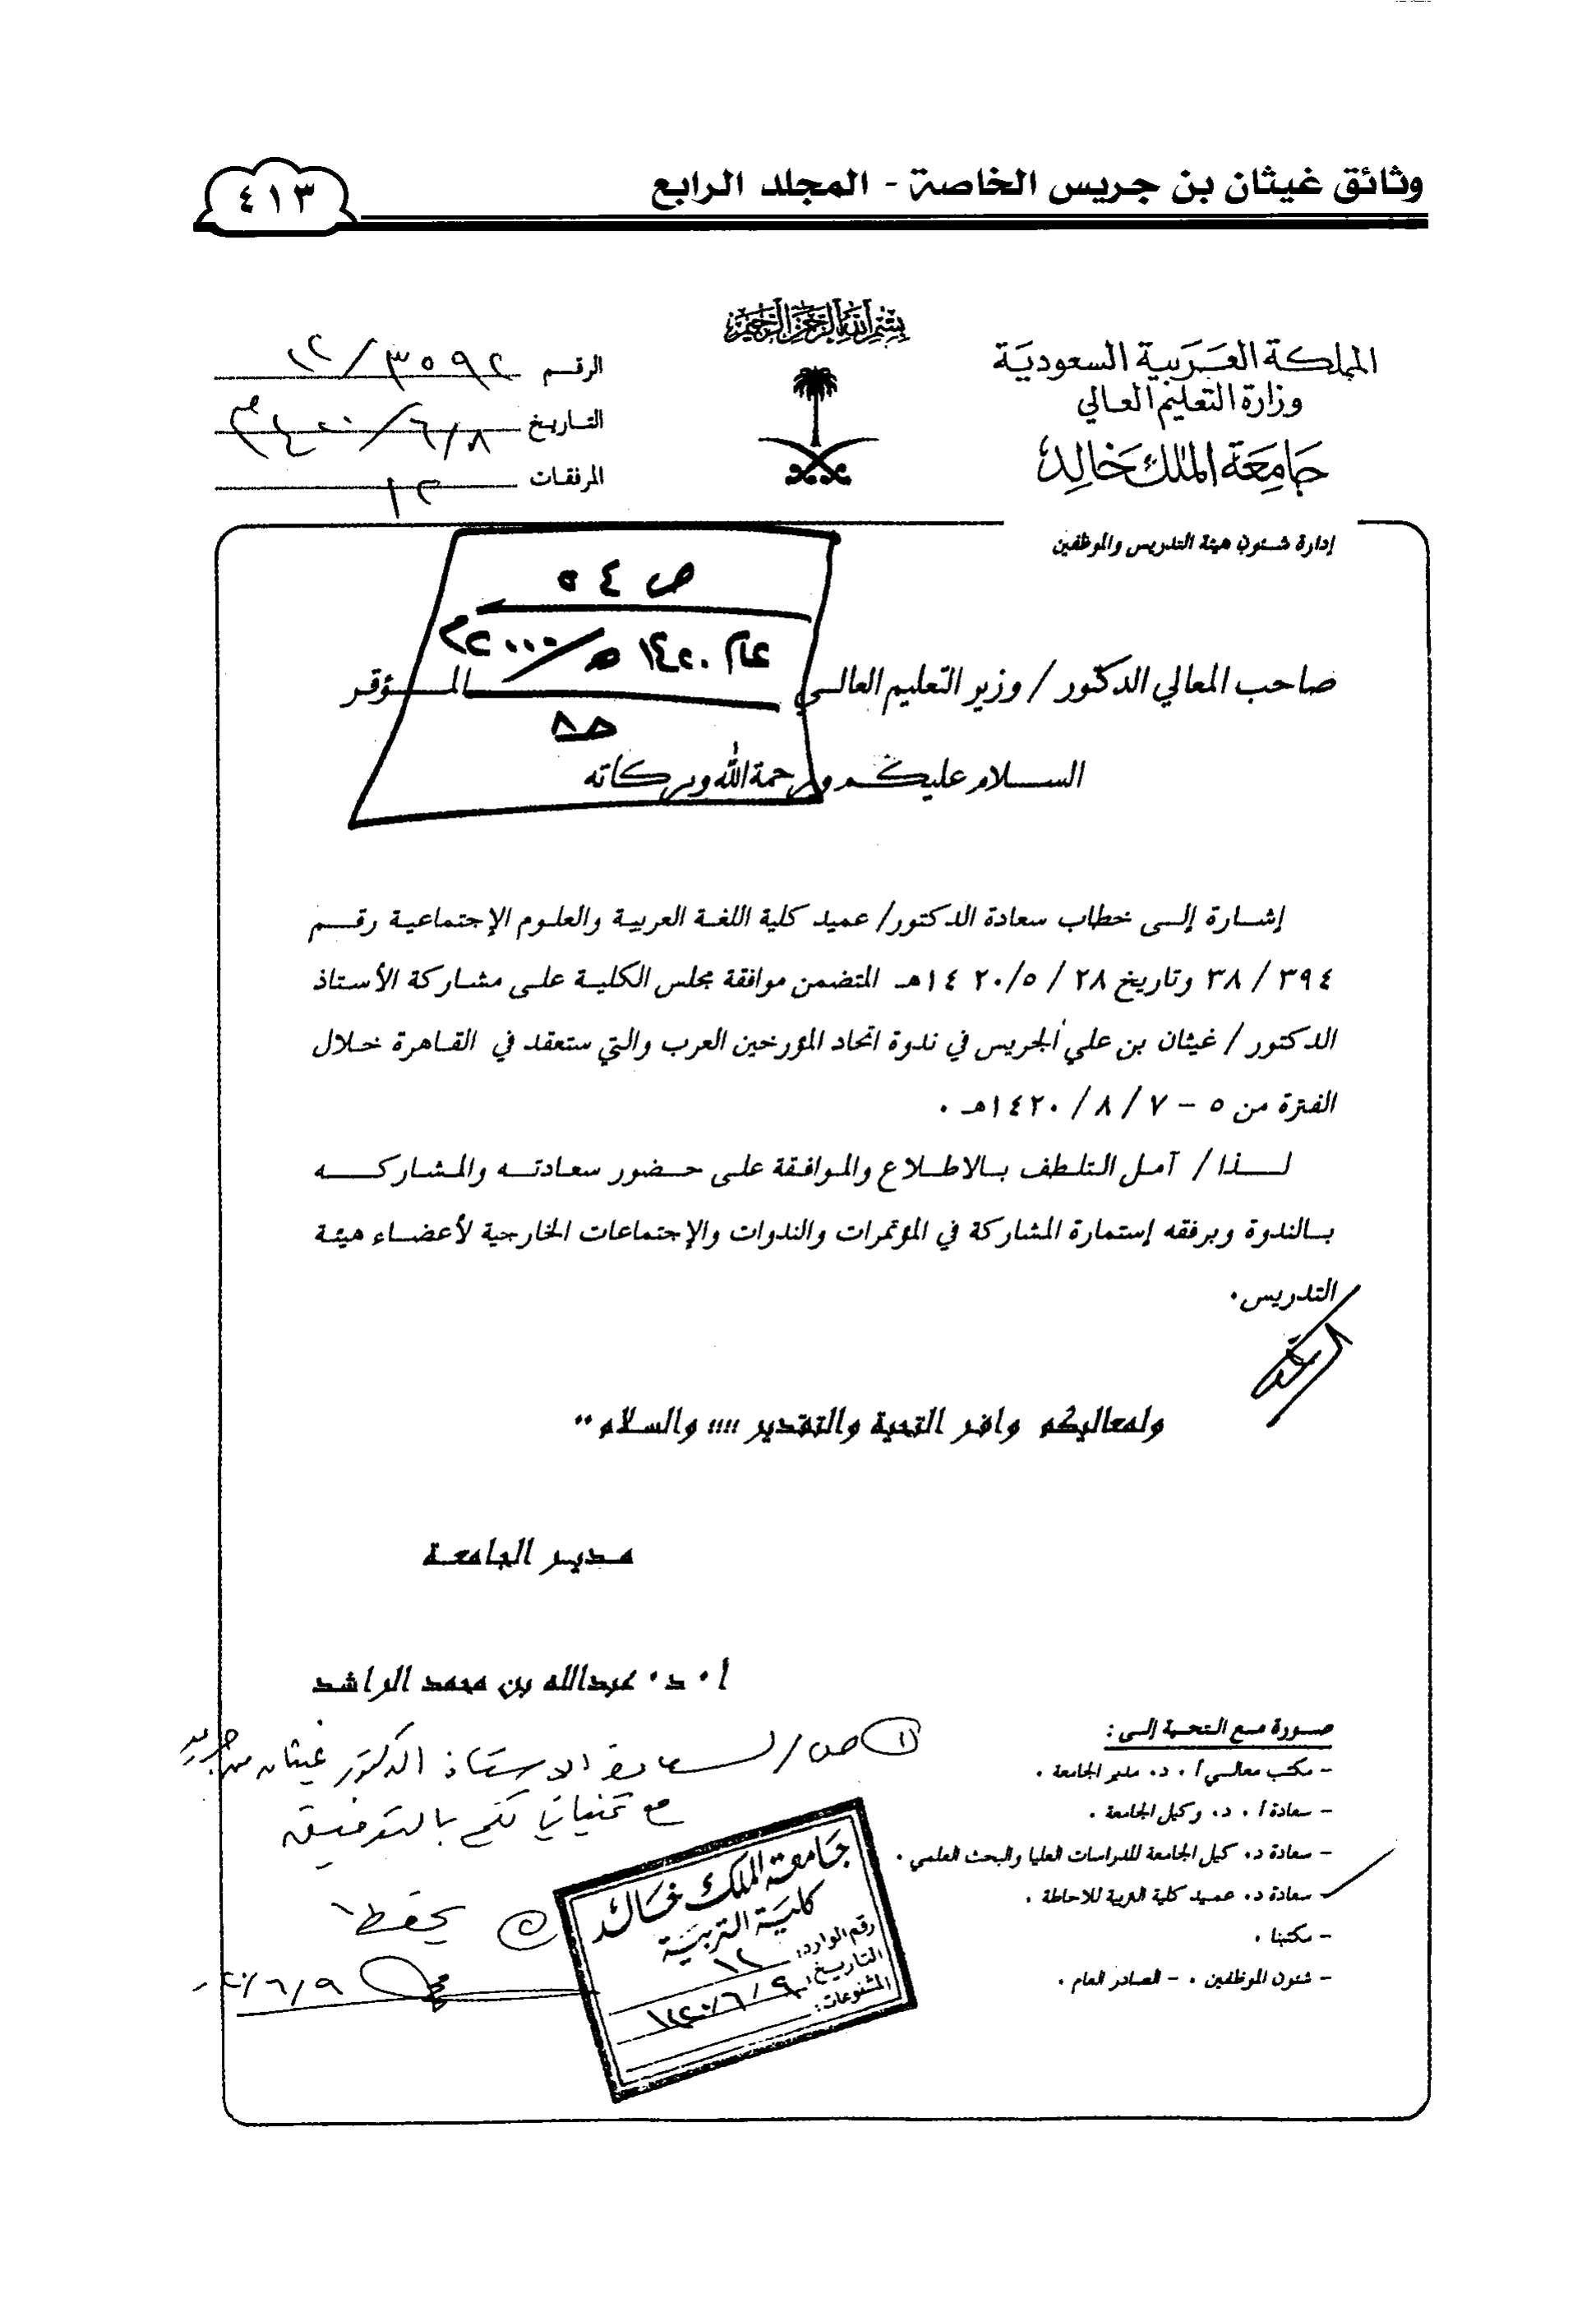 وثائق غيثان بن جريس الخاصة - المجلد الرابع
٤١٣
بسم الله الرحمن الرحيم
المملكة العربية السعودية
وزارة التعليم العالي
جامعة الملك خالد
إدارة شئون هيئة التدريس والموظفين
الرقم ١٢/٣٥٩٢
التاريخ ٨/٦/١٤٢٠هـ
المرفقات
ص ٥٤
عام ١٤٢٠هـ/٢٠٠٠م
صاحب المعالي الدكتور / وزير التعليم العالي المؤقر
السلام عليكم ورحمة الله وبركاته
إشارة إلى خطاب سعادة الدكتور/ عميد كلية اللغة العربية والعلوم الإجتماعية رقم
٣٨/٣٩٤ وتاريخ ٢٨ / ١٤٢٠/٥هـ المتضمن موافقة مجلس الكلية على مشاركة الأستاذ
الدكتور / غيثان بن علي الجريس في ندوة اتحاد المؤرخين العرب والتي ستعقد في القاهرة خلال
الفترة من ٥ – ٧ / ٨ / ١٤٢٠هـ .
لذا / آمل التلطف بالاطلاع والموافقة على حضور سعادته والمشاركه
بالندوة وبرفقه إستمارة المشاركة في المؤتمرات والندوات والإجتماعات الخارجية لأعضاء هيئة
التدريس.
ولمعاليكم وافر التحية والتقدير ،،،، والسلام ،،
مدير الجامعة
أ . د . عبدالله بن محمد الراشد
صورة مع التحية إلى :
- مكتب معالي أ . د. مدير الجامعة .
- سعادة أ . د. وكيل الجامعة .
- سعادة د. كيل الجامعة للدراسات العليا والبحث العلمي .
- سعادة د. عميد كلية التربية للاحاطة .
- مكتبنا .
- شئون الموظفين . - الصادر العام .
١ ص/لسعادة الاستاذ الدكتور غيثان بن جريس
مع تمنياتي لكم بالتوفيق
يحفظ
٩/٦/٢٠
جامعة الملك خالد
كلية التربية
رقم الوارد: ١٢
التاريخ: ٩/٦/١٤٢٠
المشفوعات: